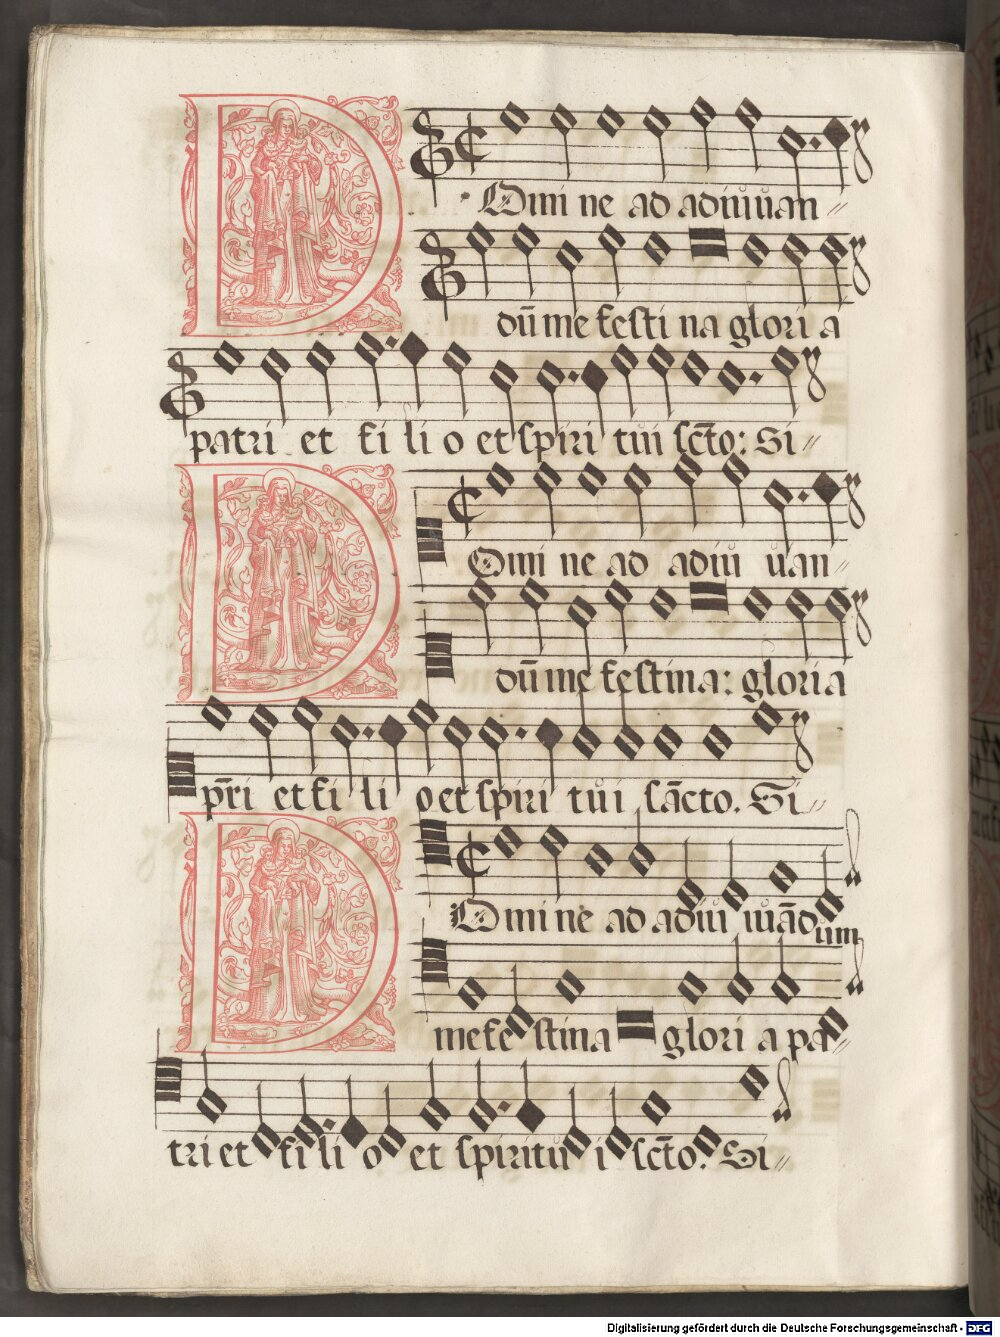 Domi ne ad adiuuan
dū me festi na glori a
patri et fi li o et spiri tui scto: Si
Domi ne ad adiu uan
dū me festina: gloria
pri et fi li o et spiri tui sācto. Si
Domi ne ad adiu iuādum
me fe stina glori a pa
tri et fi li o et spiritu i scto. Si
Digitalisierung gefördert durch die Deutsche Forschungsgemeinschaft - DFG